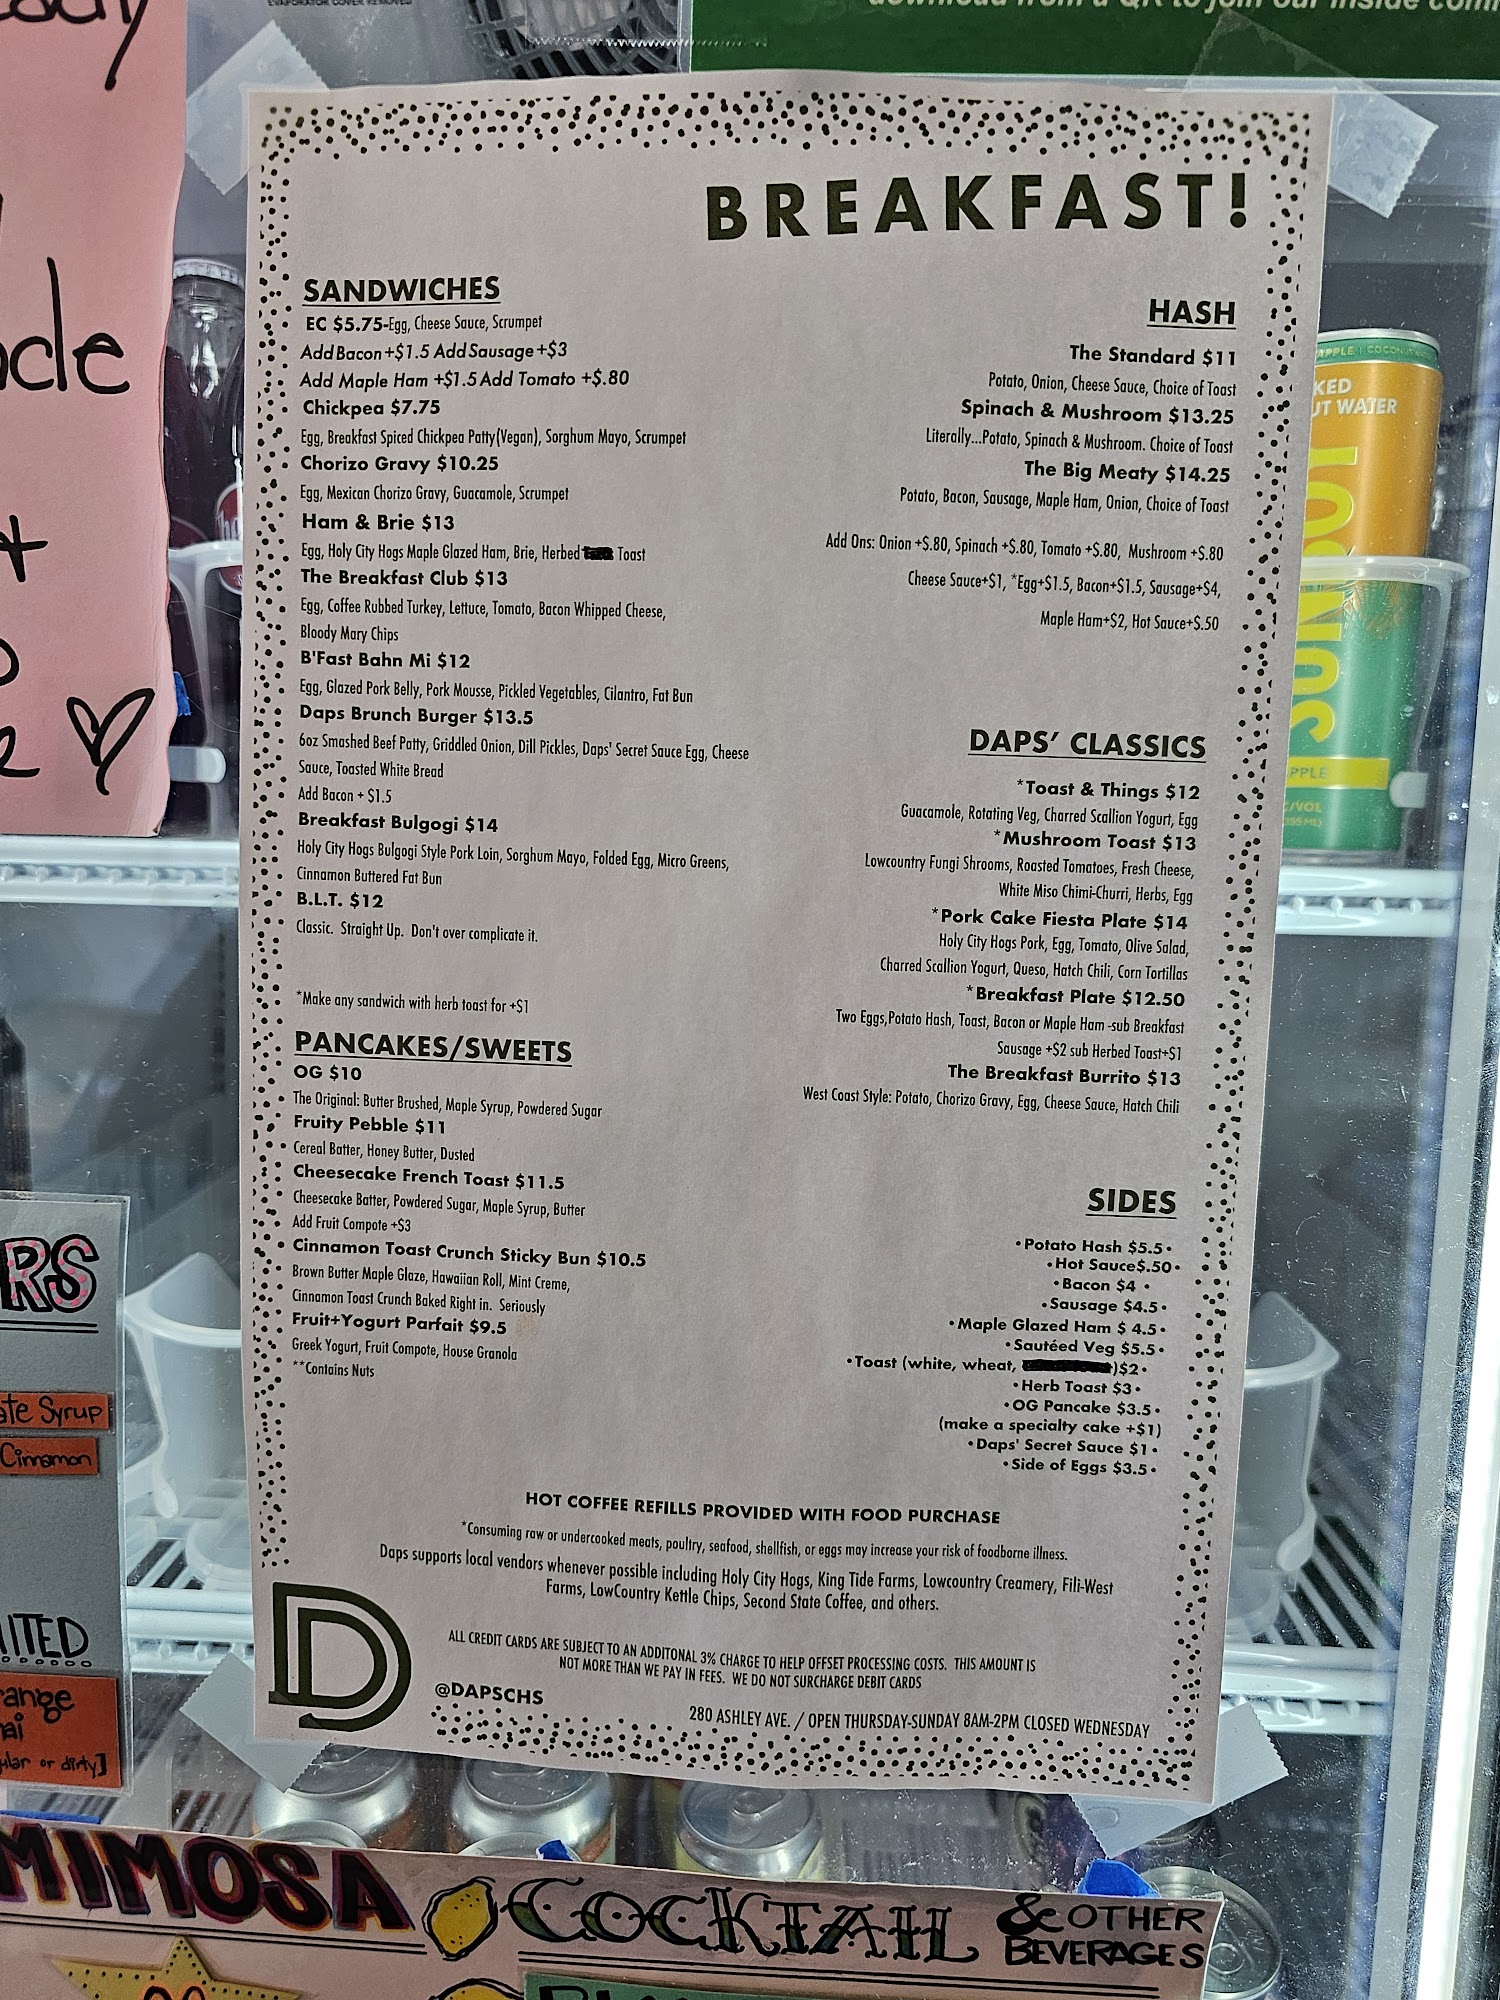 EVAPORATOR COVER REMOVED
download from a QR to join our inside
BREAKFAST!
SANDWICHES
EC $5.75-Egg, Cheese Sauce, Scrumpet
Add Bacon +$1.5 Add Sausage +$3
Add Maple Ham +$1.5 Add Tomato +$.80
Chickpea $7.75
Egg, Breakfast Spiced Chickpea Patty(Vegan), Sorghum Mayo, Scrumpet
Chorizo Gravy $10.25
Egg, Mexican Chorizo Gravy, Guacamole, Scrumpet
Ham & Brie $13
Egg, Holy City Hogs Maple Glazed Ham, Brie, Herbed Toast
The Breakfast Club $13
Egg, Coffee Rubbed Turkey, Lettuce, Tomato, Bacon Whipped Cheese,
Bloody Mary Chips
B'Fast Bahn Mi $12
Egg, Glazed Pork Belly, Pork Mousse, Pickled Vegetables, Cilantro, Fat Bun
Daps Brunch Burger $13.5
6oz Smashed Beef Patty, Griddled Onion, Dill Pickles, Daps' Secret Sauce Egg, Cheese
Sauce, Toasted White Bread
Add Bacon + $1.5
Breakfast Bulgogi $14
Holy City Hogs Bulgogi Style Pork Loin, Sorghum Mayo, Folded Egg, Micro Greens,
Cinnamon Buttered Fat Bun
B.L.T. $12
Classic. Straight Up. Don't over complicate it.
*Make any sandwich with herb toast for +$1
PANCAKES/SWEETS
OG $10
The Original: Butter Brushed, Maple Syrup, Powdered Sugar
Fruity Pebble $11
Cereal Batter, Honey Butter, Dusted
Cheesecake French Toast $11.5
Cheesecake Batter, Powdered Sugar, Maple Syrup, Butter
Add Fruit Compote +$3
Cinnamon Toast Crunch Sticky Bun $10.5
Brown Butter Maple Glaze, Hawaiian Roll, Mint Creme,
Cinnamon Toast Crunch Baked Right in. Seriously
Fruit+Yogurt Parfait $9.5
Greek Yogurt, Fruit Compote, House Granola
**Contains Nuts
HASH
The Standard $11
Potato, Onion, Cheese Sauce, Choice of Toast
Spinach & Mushroom $13.25
Literally...Potato, Spinach & Mushroom. Choice of Toast
The Big Meaty $14.25
Potato, Bacon, Sausage, Maple Ham, Onion, Choice of Toast
Add Ons: Onion +$.80, Spinach +$.80, Tomato +$.80, Mushroom +$.80
Cheese Sauce+$1, *Egg+$1.5, Bacon+$1.5, Sausage+$4,
Maple Ham+$2, Hot Sauce+$.50
DAPS' CLASSICS
*Toast & Things $12
Guacamole, Rotating Veg, Charred Scallion Yogurt, Egg
*Mushroom Toast $13
Lowcountry Fungi Shrooms, Roasted Tomatoes, Fresh Cheese,
White Miso Chimi-Churri, Herbs, Egg
*Pork Cake Fiesta Plate $14
Holy City Hogs Pork, Egg, Tomato, Olive Salad,
Charred Scallion Yogurt, Queso, Hatch Chili, Corn Tortillas
*Breakfast Plate $12.50
Two Eggs,Potato Hash, Toast, Bacon or Maple Ham -sub Breakfast
Sausage +$2 sub Herbed Toast+$1
The Breakfast Burrito $13
West Coast Style: Potato, Chorizo Gravy, Egg, Cheese Sauce, Hatch Chili
SIDES
•Potato Hash $5.5•
•Hot Sauce$.50•
•Bacon $4 •
•Sausage $4.5•
•Maple Glazed Ham $ 4.5•
•Sautéed Veg $5.5•
•Toast (white, wheat, )$2•
•Herb Toast $3•
•OG Pancake $3.5•
(make a specialty cake +$1)
•Daps' Secret Sauce $1•
•Side of Eggs $3.5•
HOT COFFEE REFILLS PROVIDED WITH FOOD PURCHASE
*Consuming raw or undercooked meats, poultry, seafood, shellfish, or eggs may increase your risk of foodborne illness.
Daps supports local vendors whenever possible including Holy City Hogs, King Tide Farms, Lowcountry Creamery, Fili-West
Farms, LowCountry Kettle Chips, Second State Coffee, and others.
ALL CREDIT CARDS ARE SUBJECT TO AN ADDITONAL 3% CHARGE TO HELP OFFSET PROCESSING COSTS. THIS AMOUNT IS
NOT MORE THAN WE PAY IN FEES. WE DO NOT SURCHARGE DEBIT CARDS
D
@DAPSCHS
280 ASHLEY AVE. / OPEN THURSDAY-SUNDAY 8AM-2PM CLOSED WEDNESDAY
Syrup
Cinnamon
or dirty]
MIMOSA
COCKTAIL & OTHER
BEVERAGES
COCONUT
WATER